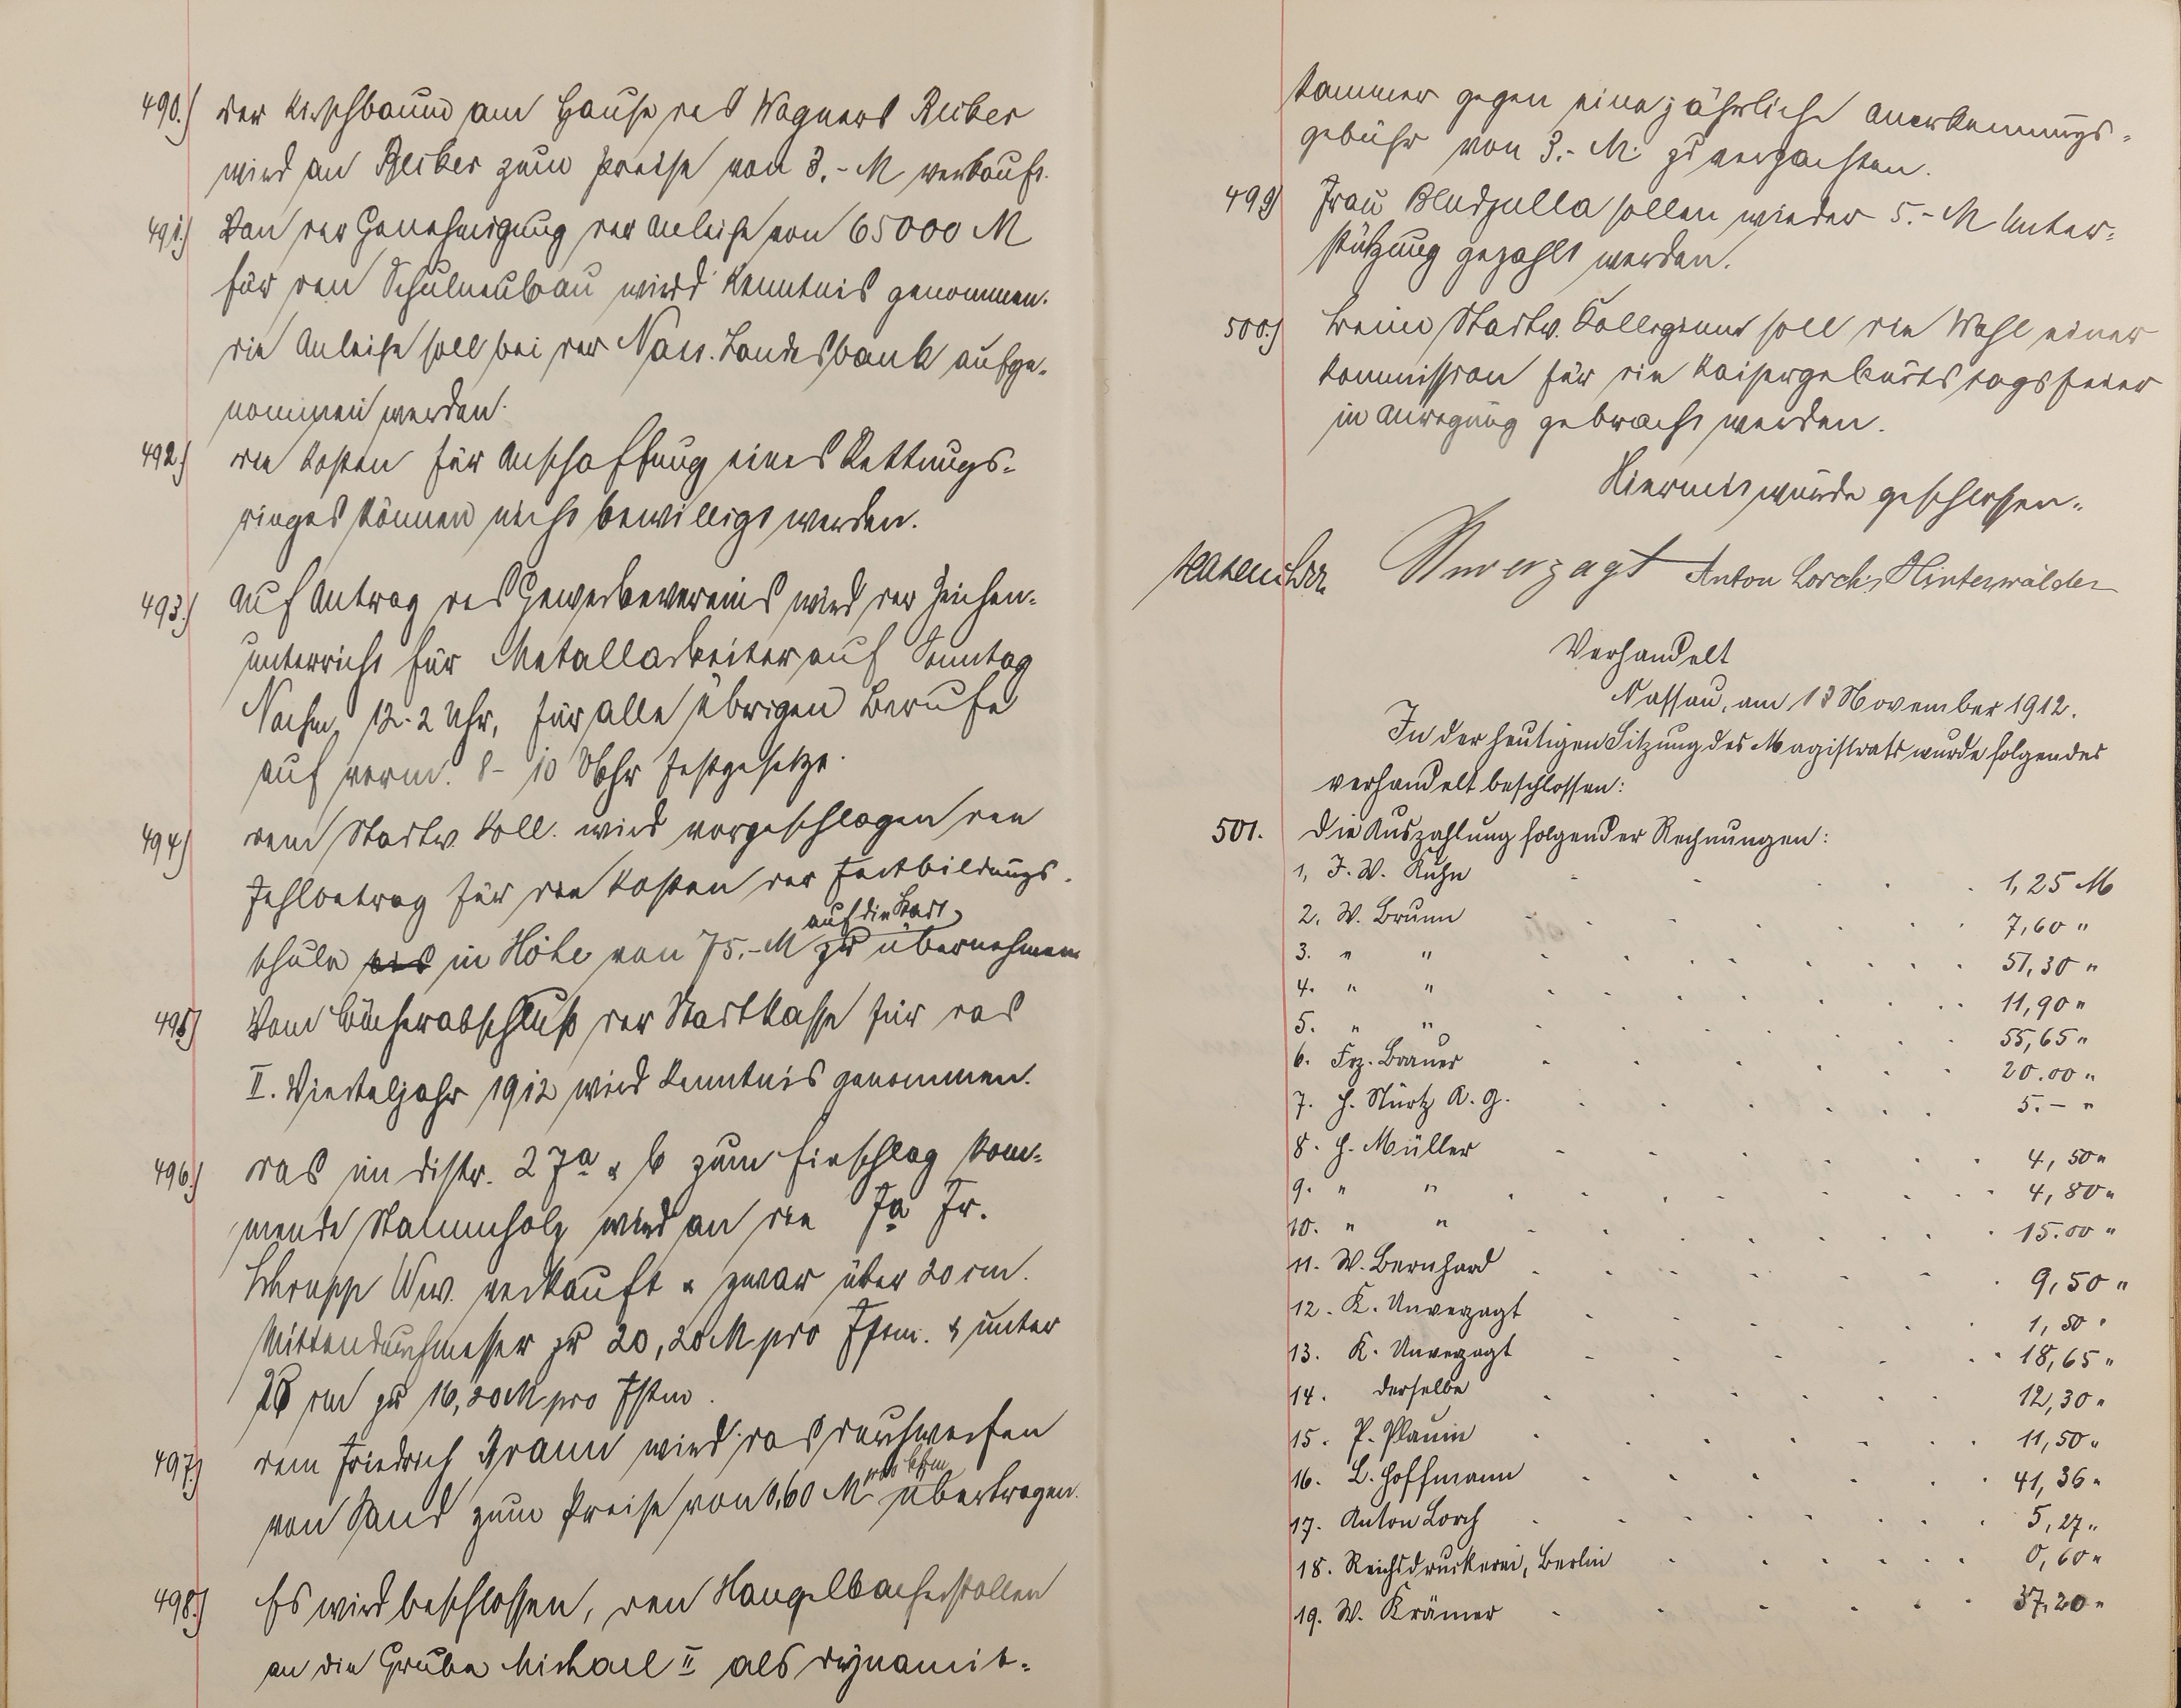 490.) Der Kirschbaum am Hause des Wagners Reiber
wird an Reiber zum Preise von 3.- M verkauft.
491.) Von der Genehmigung der Anleihe von 65000 M
für den Schulneubau wird Kenntnis genommen.
Die Anleihe soll bei der Nass. Landesbank aufge-
nommen werden.
492.) Die Kosten für Anschaffung eines Rettungs-
ringes können nicht bewilligt werden.
493.) Auf Antrag des Gewerbevereins wird der Zeichen-
unterricht für Metallarbeiter auf Sonntag
Nachm. 12-2 Uhr, für alle übrigen Berufe
auf vorm. 8-10 Uhr festgesetzt.
494.) Dem Stadtv. Koll. wird vorgeschlagen den
Fehlbetrag für die Kosten der Fortbildungs-
auf die Stadt
schule in Höhe von 75.- M zu übernehmen
495.) Vom Bücherabschluß der Stadtkasse für das
II. Vierteljahr 1912 wird Kenntnis genommen.
496.) Das im Distr. 27a & b zum Einschlag kom-
mende Stammholz wird an die Fa Fr.
Schrupp Ww. verkauft & zwar über 20 cm.
Mittendurchmesser zu 20,20 M pro Fstm. & unter
cm zu 16,20 M pro Fstm.
497.) Dem Friedrich Gramm wird das Durchwerfen
pro kbm
von Sand zum Preise von 0,60 M übertragen.
498.) Es wird beschlossen, den Hangelbacherstollen
an die Grube Michael II als Dynamit-
kammer gegen eine jährliche Anerkennungs-
gebühr von 3.- M. zu verpachten.
499) Frau Bludzulla sollen wieder 5.- M Unter-
stützung gezahlt werden.
500.) Beim Stadtv. Kollegium soll die Wahl einer
Kommission für die Kaisergeburtstagsfeier
in Anregung gebracht werden.
Hiermit wurde geschlossen.
Unverzagt Anton Lorch Hinterwälder
Verhandelt
Nassau, am 13 November 1912.
In der heutigen Sitzung des Magistrats wurde folgendes
verhandelt beschlossen:
501. Die Auszahlung folgender Rechnungen:
1, J. W. Kuhn 1,25 M
2. W. Brunn 7,60 "
3. " " 51,30 "
4. " " 11,90 "
5. " " 55,65 "
6. Frz. Brauer 20.00 "
7. H. Stürtz A. G. 5.- "
8. H. Müller 4,50 "
9. " " 4,80 "
10. " " 15.00 "
11. W. Bernhard 9,50 "
12. K. Unverzagt 1,50 "
13. K. Unverzagt 18,65 "
14. derselbe 12,30 "
15. P. Plaum 11,50 "
16. L. Hoffmann 41,36 "
17. Anton Lorch 5,27 "
18. Reichsdruckerei, Berlin 0,60 "
19. W. Krämer 37,20 "